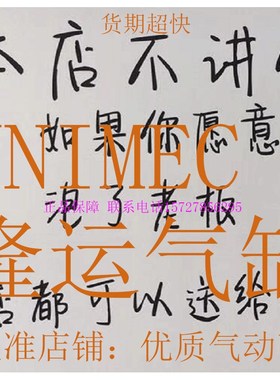 货期超快
本店不讲
如果你愿意
UNIMEC
泡了老板
正品保障 联系电话:15727956295
隆运气缸
店都可以送给
认准店铺：优质气动